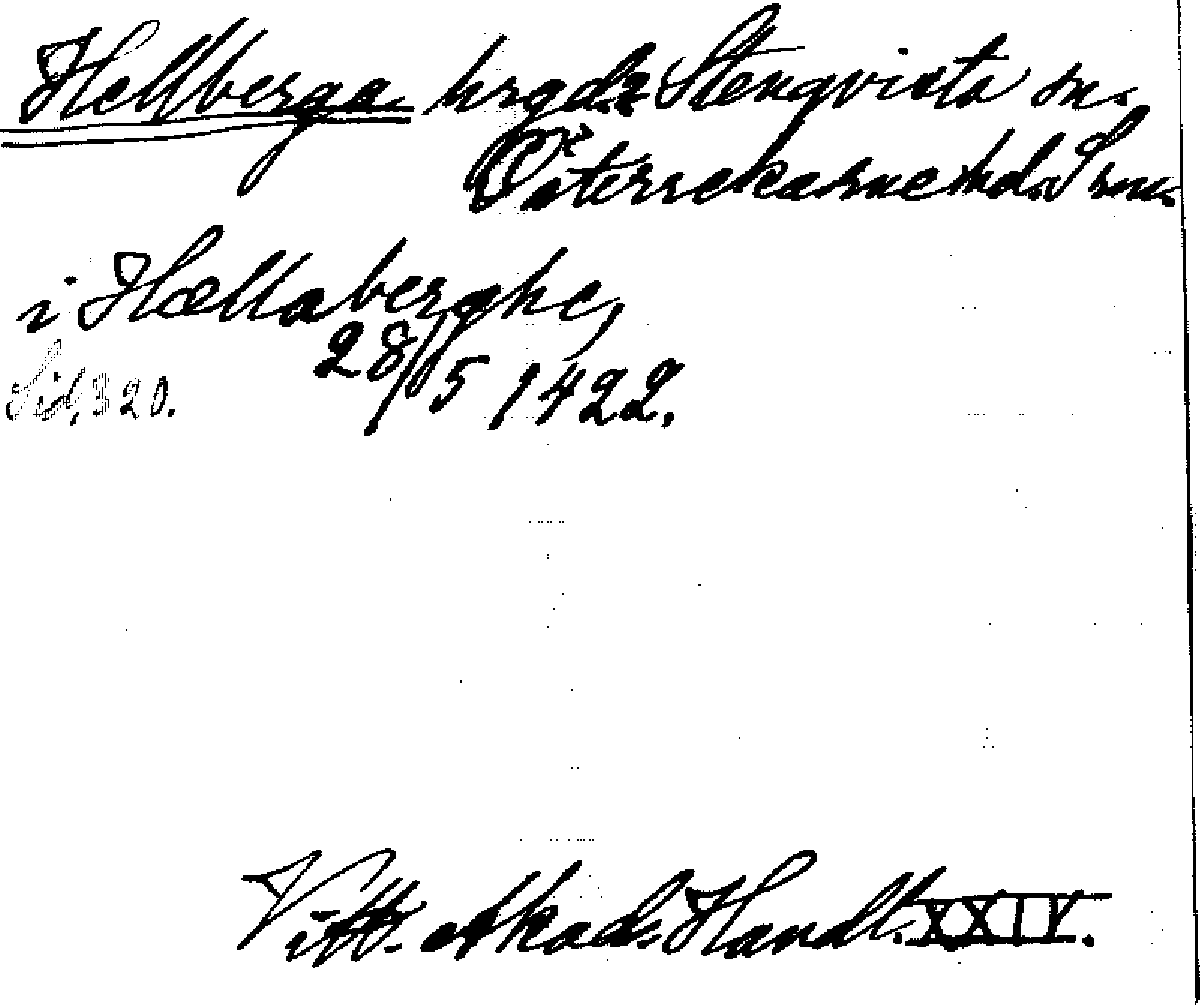 Hellberga hrgd. Stenqvista sn.
Österrekarne hd. Srm.
i Hællaberghe,
28/5 1422.
Sid. 320.
Vitt. Akad. Handl. XXIV.